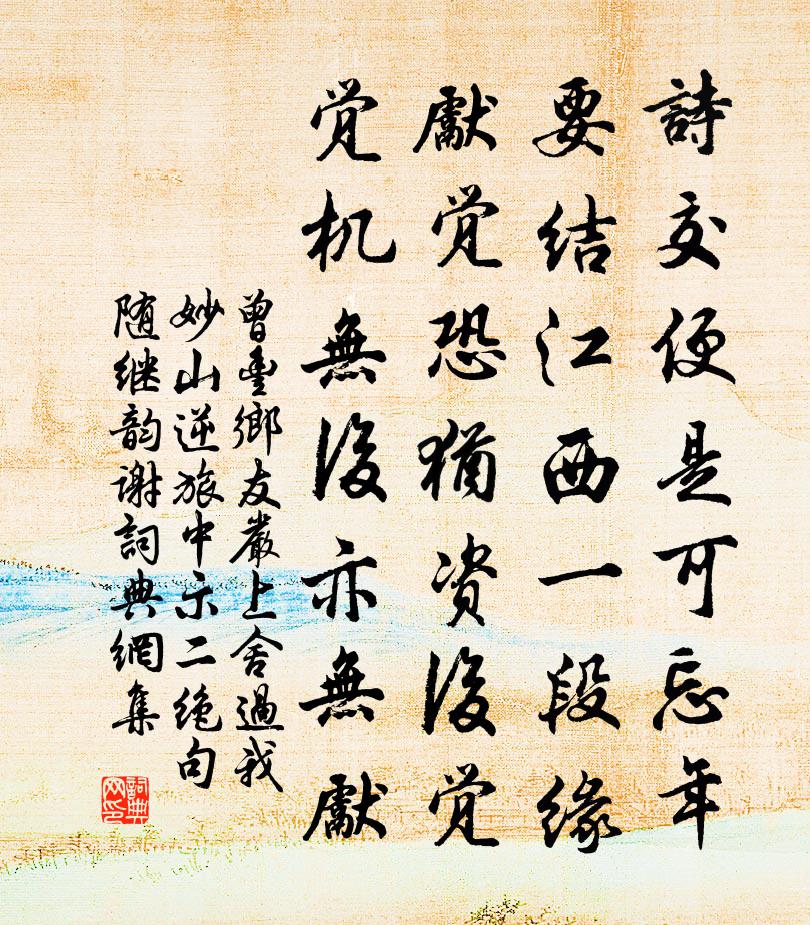 詩交便是可忘年
要結江西一段緣
獻覚恐猶资後覚
覚机無後亦無獻
曾豐鄉友嚴上舍過我
妙山逆旅中示二绝句
随继韵谢詞典網集
詞典网印